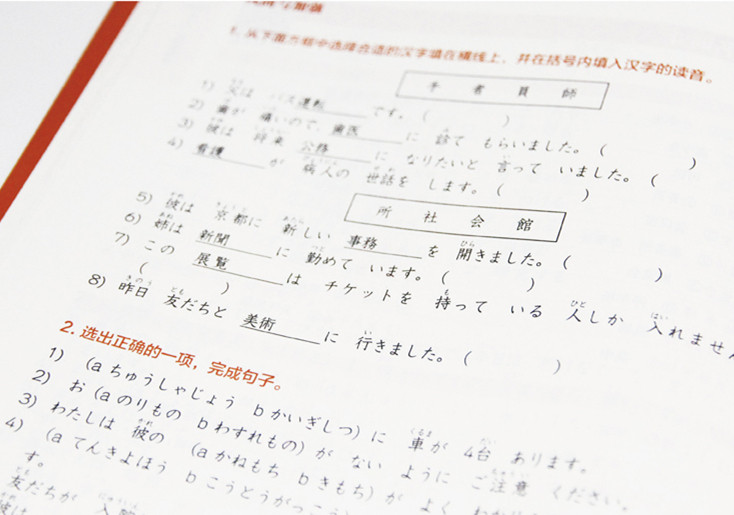 1. 从下面方框中选择合适的汉字填在横线上，并在括号内填入汉字的读音。
手 者 員 師
1) 父は バス運転＿＿＿ です。（ ）
2) 歯が 痛いので、歯医＿＿＿ に 診て もらいました。（ ）
3) 彼は 将来 公務＿＿＿ に なりたいと 言って いました。（ ）
4) 看護＿＿＿ が 病人の 世話を します。（ ）
所 社 会 館
5) 彼は 京都に 新しい 事務＿＿＿ を 開きました。（ ）
6) 姉は 新聞＿＿＿ に 勤めて います。（ ）
7) この 展覧＿＿＿ は チケットを 持って いる 人しか 入れません
（ ）
8) 昨日 友だちと 美術＿＿＿ に 行きました。（ ）
2. 选出正确的一项，完成句子。
1) （a ちゅうしゃじょう b かいぎしつ）に 車が 4台 あります。
2) お（a のりもの b わすれもの）が ない ように ご注意 ください。
3) わたしは 彼の （a かねもち b きもち）が よく
4) （a てんきよほう b こうとうがっこう
す。
友だちが
彼は